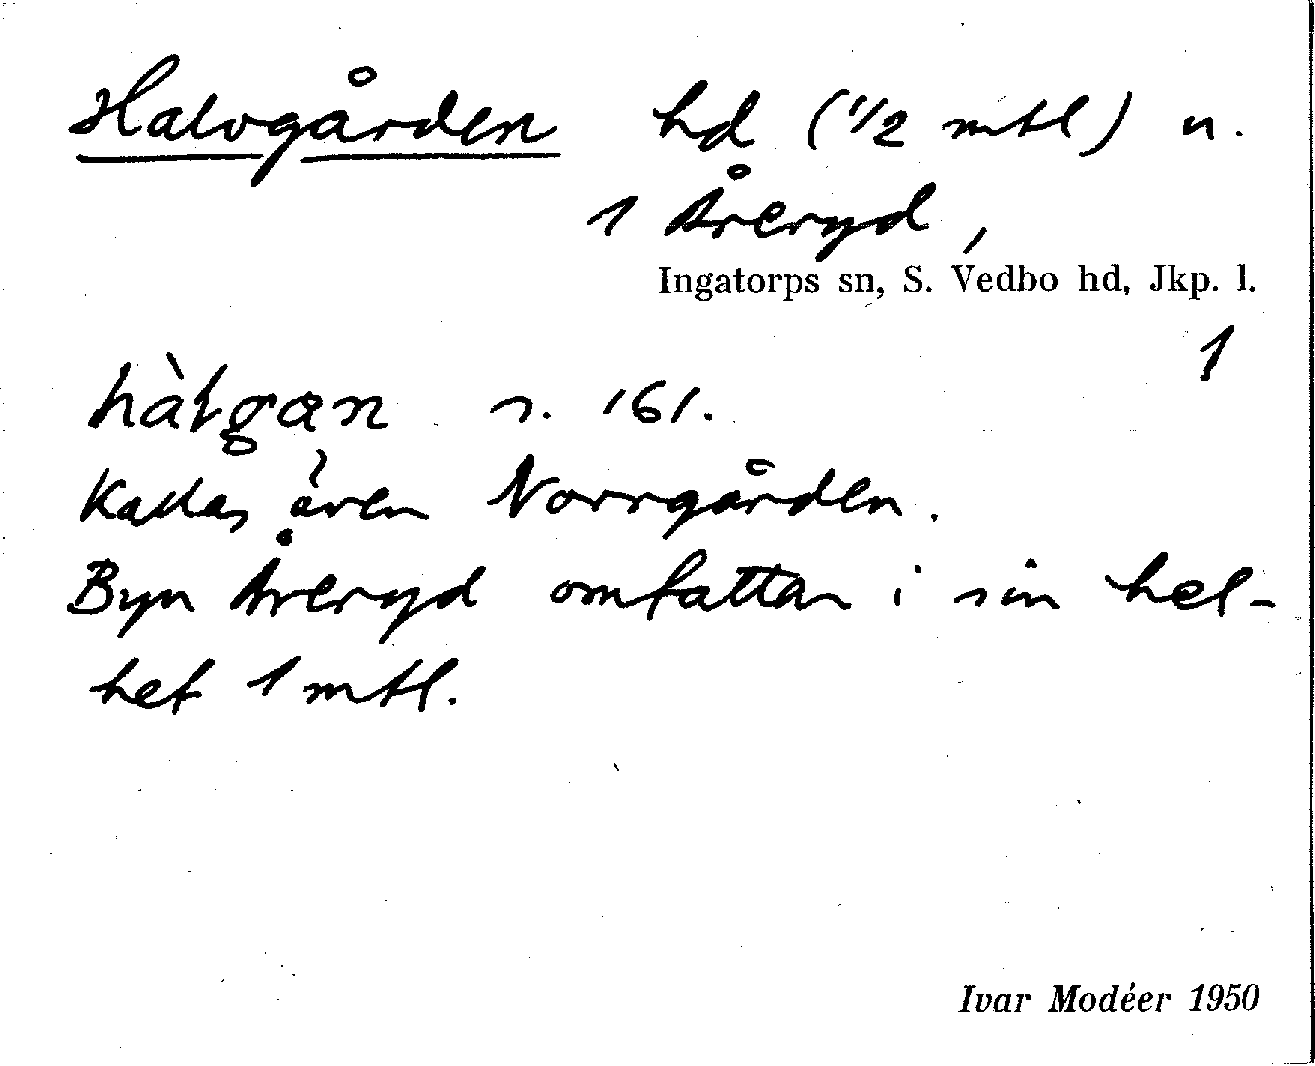 Halvgården hd (1/2 mtl) u.
1 Åreryd,
Ingatorps sn, S. Vedbo hd, Jkp. l.
1
s. 161.
Kallas även Norrgården.
Byn Åreryd omfattar i sin hel-
het 1 mtl.
Ivar Modéer 1950